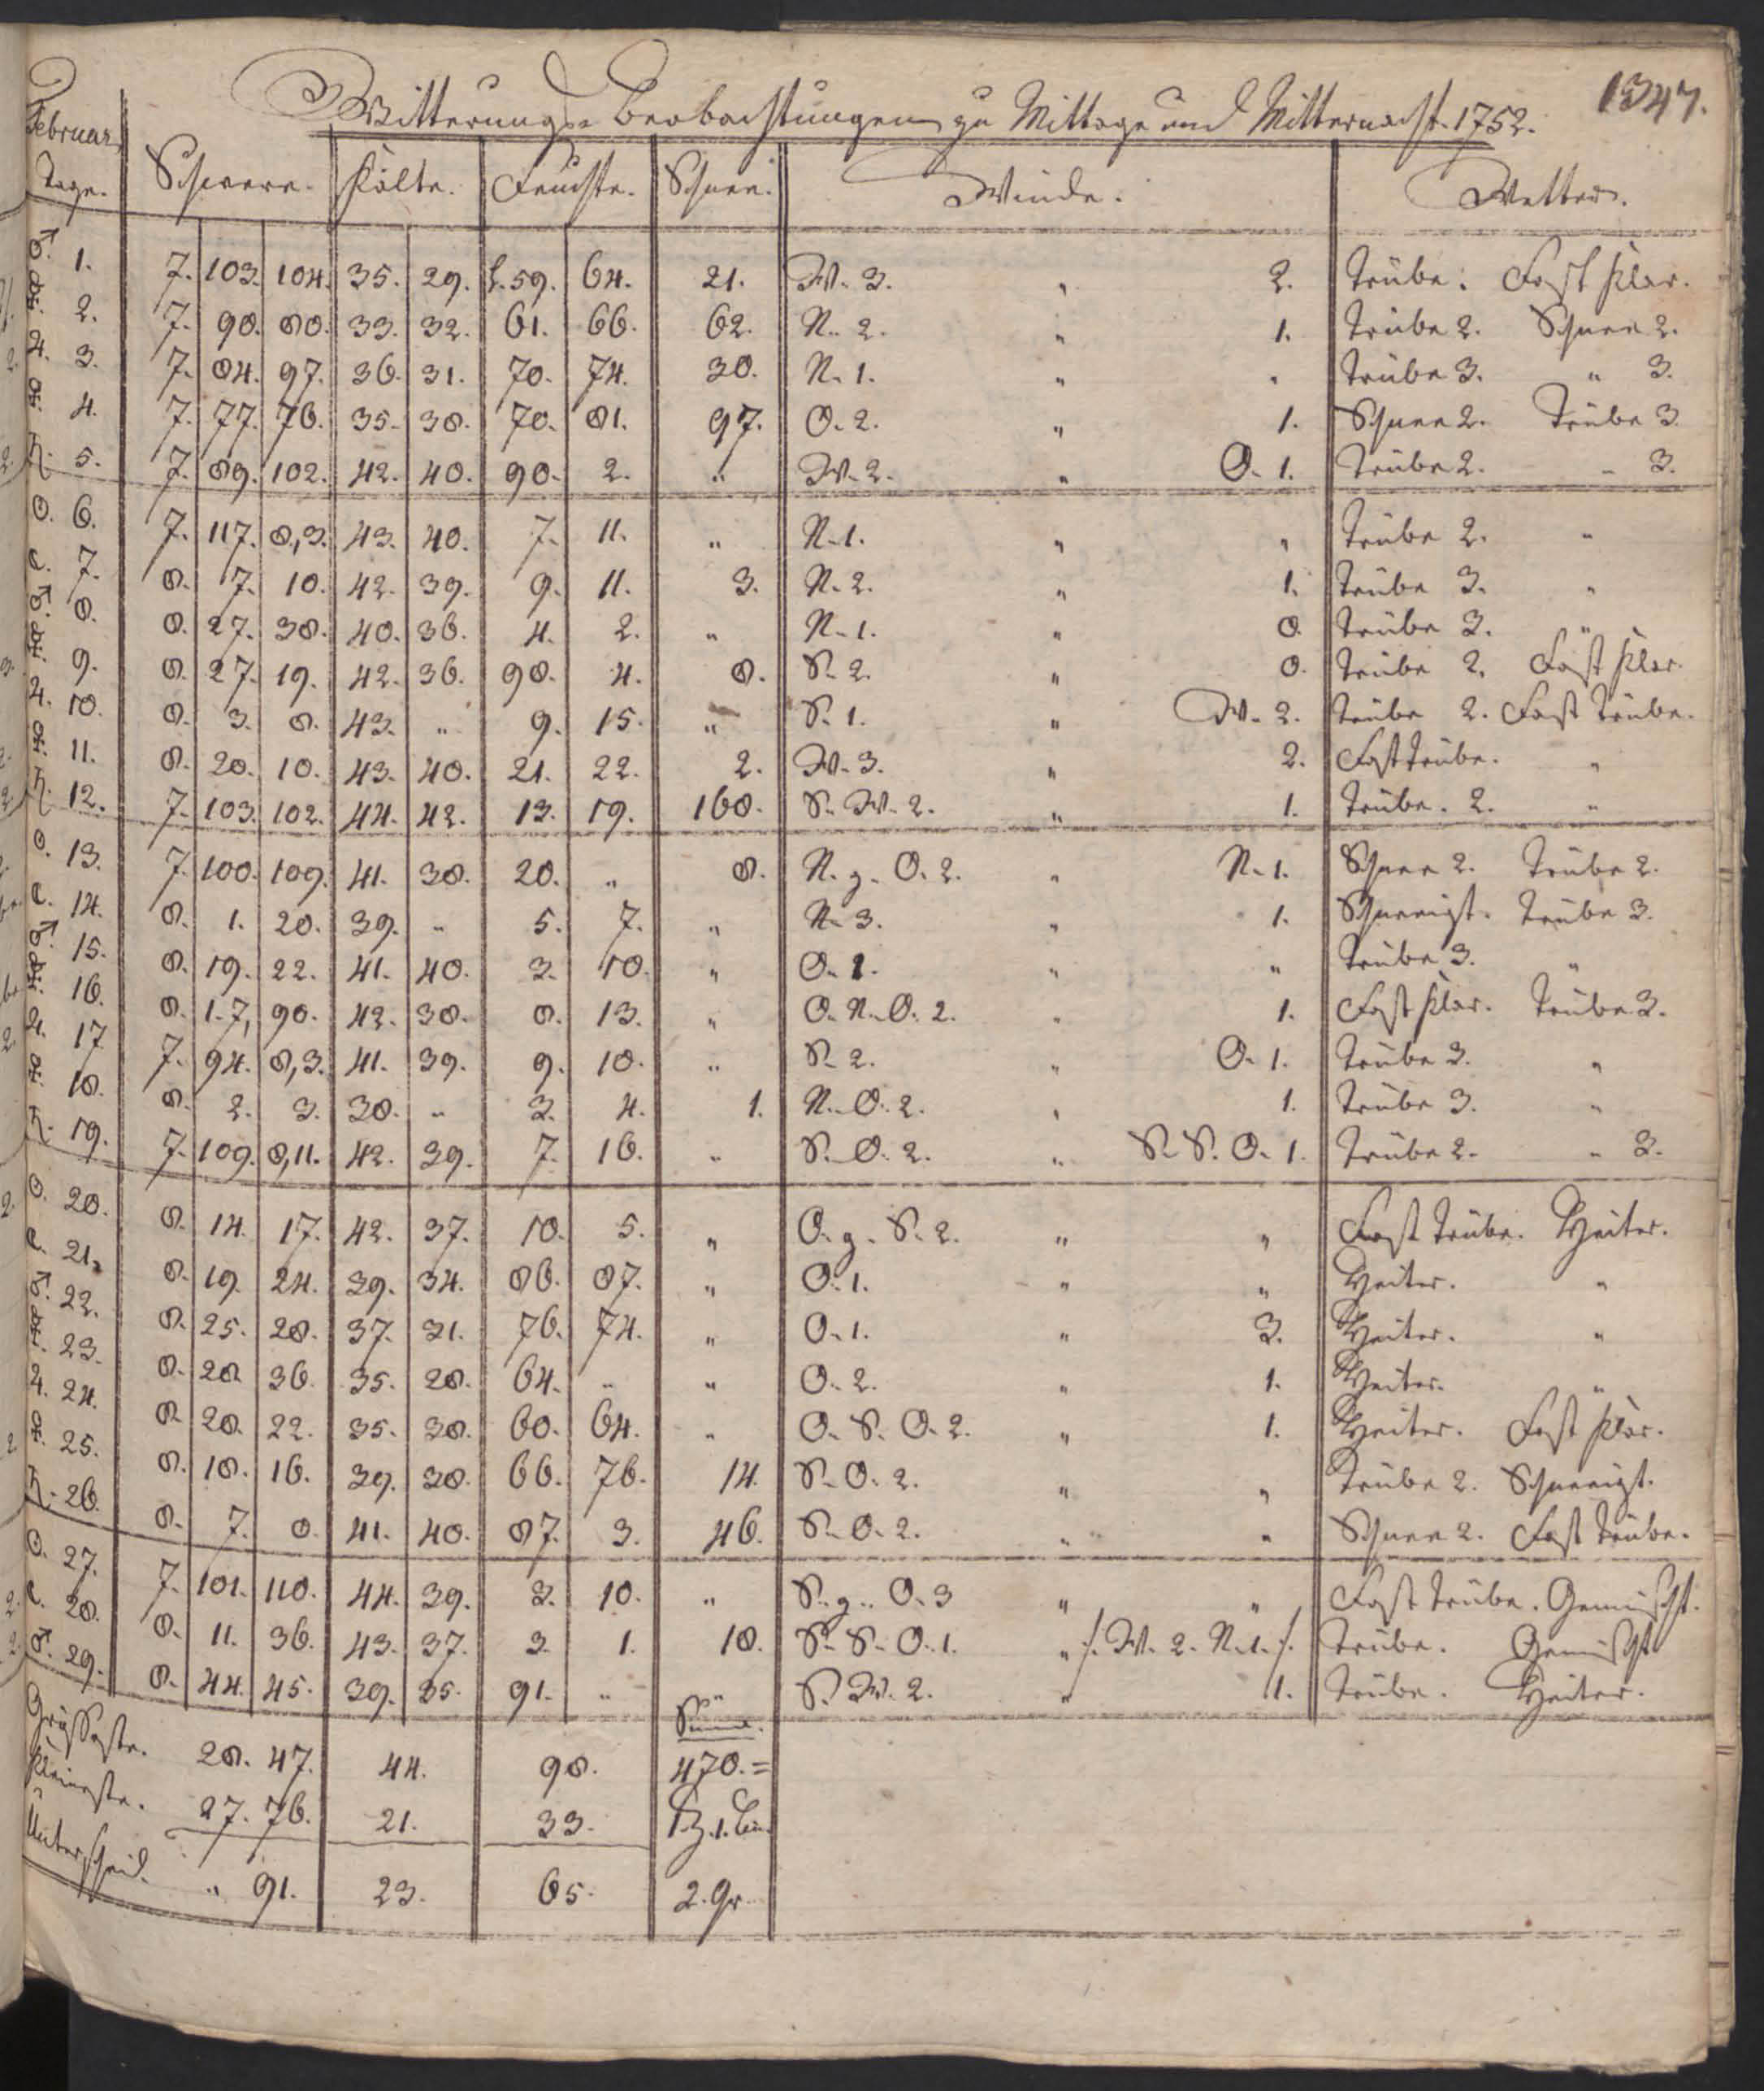 1347.
Witterungs-Beobachtungen zu Mittage und Mitternacht. 1752.
Februar. Tage. Schwere. Kälte. Feuchte. Schnee. Winde. Wetter.
♂. 1. 7. 103. 104. 35. 29. 59. 64. 21. W. 3. „ 2. Trübe. Fast klar.
☿. 2. 7. 98. 88. 33. 32. 61. 66. 62. N. 2. „ 1. Trübe 2. Schnee 2.
♃. 3. 7. 84. 97. 36. 31. 70. 74. 30. N. 1. „ „ Trübe 3. „ 3.
♀. 4. 7. 77. 76. 35. 38. 70. 81. 97. O. 2. „ 1. Schnee 2. Trübe 3.
♄. 5. 7. 89. 102. 42. 40. 90. 2. „ W. 2. „ O. 1. Trübe 2. „ 3.
☉. 6. 7. 117. 8,3. 43. 40. 7. 11. „ N. 1. „ „ Trübe 2. „
☾. 7. 8. 7. 10. 42. 39. 9. 11. 3. N. 2. „ 1. Trübe 3. „
♂. 8. 8. 27. 38. 40. 36. 4. 2. „ N. 1. „ 0. Trübe 3. „
☿. 9. 8. 27. 19. 42. 36. 98. 4. 8. S. 2. „ 0. Trübe 2. Fast klar.
♃. 10. 8. 3. 8. 43. „ 9. 15. „ S. 1. „ W. 2. Trübe 2. Fast Trübe.
♀. 11. 8. 20. 10. 43. 40. 21. 22. 2. W. 3. „ 2. Fast Trübe. „
♄. 12. 7. 103. 102. 44. 42. 13. 19. 168. S. W. 2. „ 1. Trübe. 2. „
☉. 13. 7. 100. 109. 41. 38. 20. „ 8. N. g. O. 2. „ N. 1. Schnee 2. Trübe 2.
☾. 14. 8. 1. 20. 39. „ 5. 7. „ N. 3. „ 1. Schneeigt. Trübe 3.
♂. 15. 8. 19. 22. 41. 40. 3. 10. „ O. 1. „ „ Trübe 3. „
☿. 16. 8. 1. 7, 98. 42. 38. 8. 13. „ O. N. O. 2. „ 1. Fast klar. Trübe 3.
♃. 17 7. 94. 8,3. 41. 39. 9. 10. „ S. 2. „ O. 1. Trübe 3. „
♀. 18. 8. 2. 3. 38. „ 3. 4. 1. N. O. 2. „ 1. Trübe 3. „
♄. 19. 7. 109. 8,11. 42. 39. 7. 16. „ S. O. 2. „ S. S. O. 1. Trübe 2. „ 3.
☉. 20. 8. 14. 17. 42. 37. 10. 5. „ O. g. S. 2. „ „ Fast Trübe. Heiter.
☾. 21. 8. 19. 24. 39. 34. 86. 87. „ O. 1. „ „ Heiter. „
♂. 22. 8. 25. 28. 37. 31. 76. 74. „ O. 1. „ 3. Heiter. „
☿. 23. 8. 28. 36. 35. 28. 64. „ „ O. 2. „ 1. Heiter. „
♃. 24. 8. 28. 22. 35. 38. 60. 64. „ O. S. O. 2. „ 1. Heiter. Fast klar.
♀. 25. 8. 18. 16. 39. 38. 66. 76. 14. S. O. 2. „ „ Trübe 2. Schneeigt.
♄. 26. 8. 7. 0. 41. 40. 87. 3. 46. S. O. 2. „ „ Schnee 2. Fast Trübe.
☉. 27. 7. 101. 110. 44. 39. 3. 10. „ S. g. O. 3 „ „ Fast Trübe. Gemischt.
☾. 28. 8. 11. 36. 43. 37. 3. 1. 18. S. S. O. 1. „ /: W. 2. N. 1. :/ Trübe. Gemischt
♂. 29. 8. 44. 45. 39. 35. 91. „ „ S. W. 2. „ 1. Trübe. Heiter.
Sum̄e.
Grösseste. 28. 47. 44. 98. 470. =
Kleineste. 27. 76. 21. 33. 1.
Unterscheid. „ 91. 23. 65. 2. Gr.